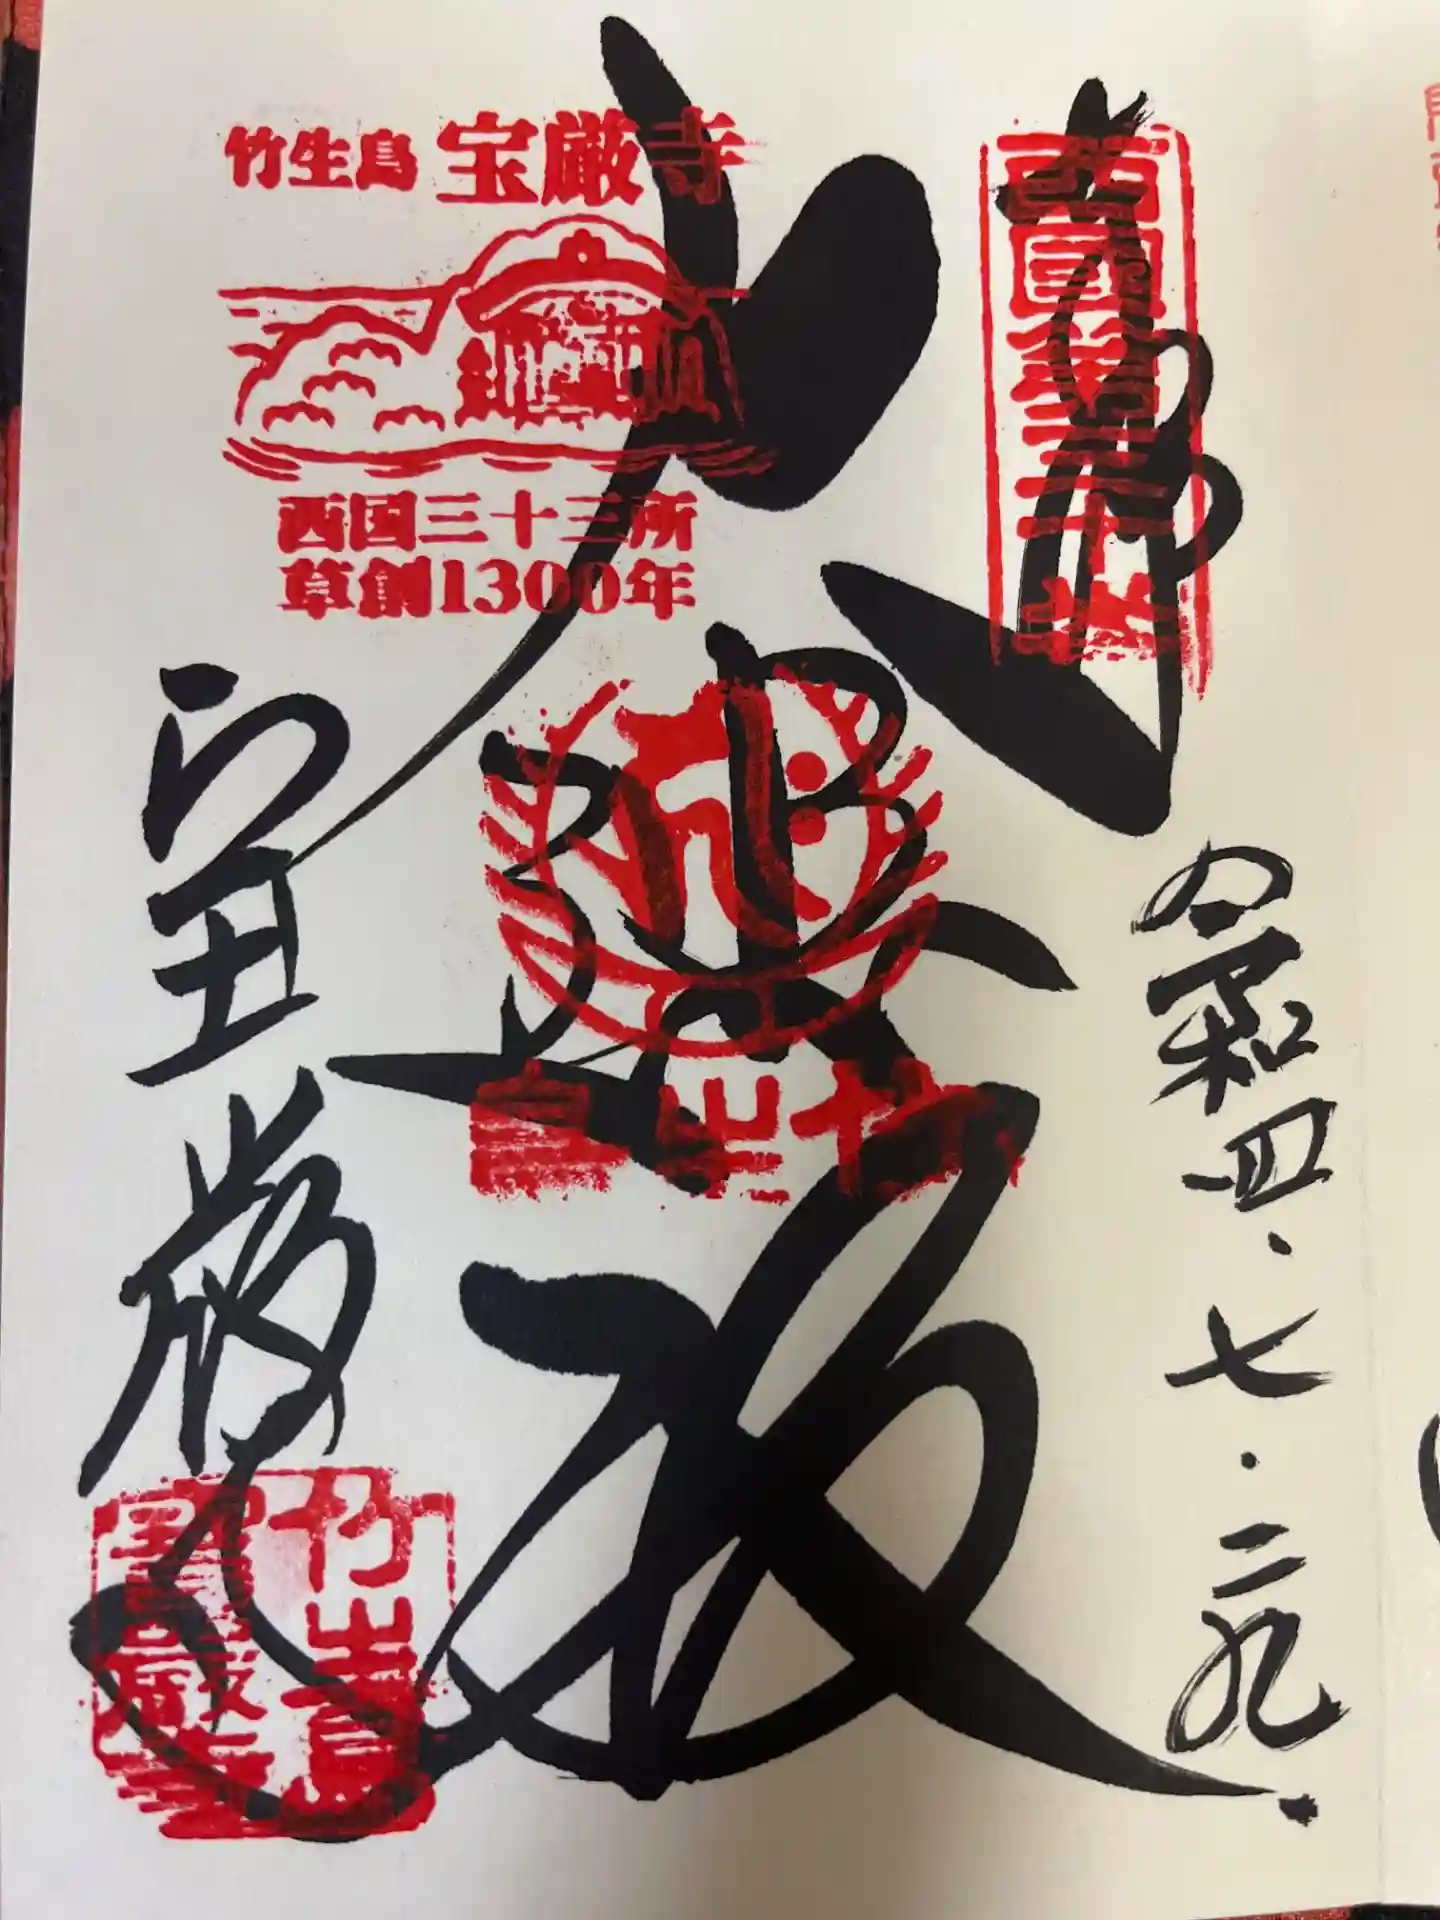 奉拝
西國第三十番
令和四・七・二九
大悲殿
竹生島 宝厳寺
西国三十三所
草創1300年
宝厳寺
竹生島
寶嚴寺